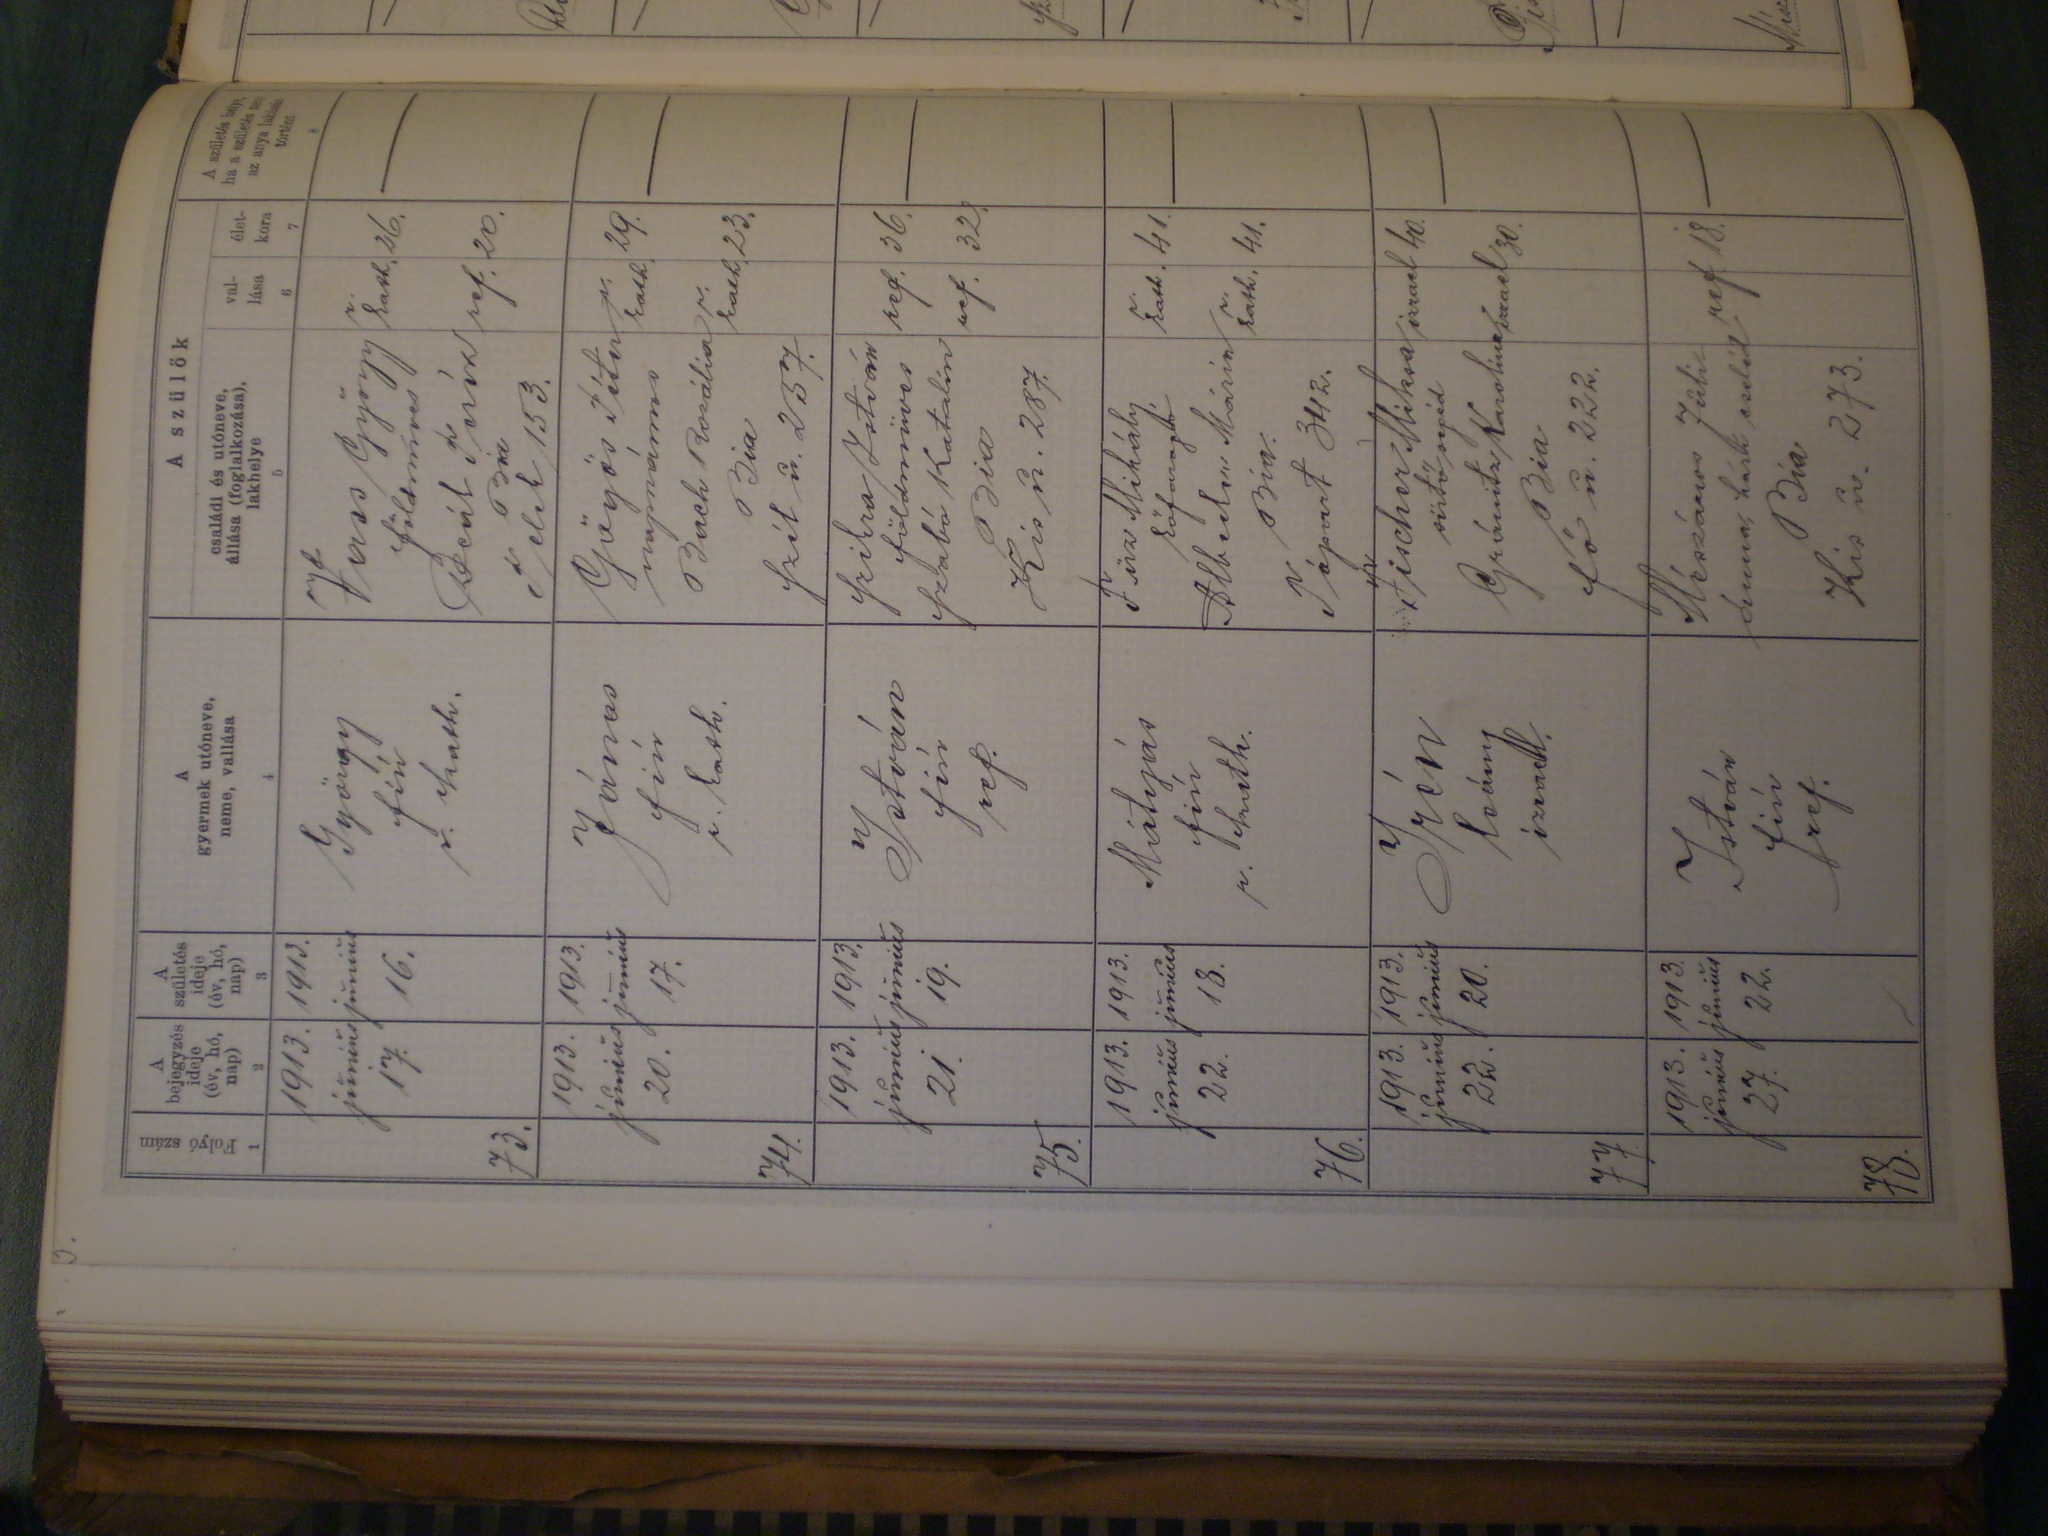 A szülők
Folyó szám
A bejegyzés ideje (év, hó, nap)
A születés ideje (év, hó, nap)
A gyermek utóneve, neme, vallása
családi és utóneve, állása (foglalkozása), lakhelye
vallása
életkora
A születés helye, ha a születés nem az anya lakásán történt
1 2 3 4 5 6 7 8
73.
1913. június 17.
1913. június 16.
György
fiú
r. kath.
Vass György
földmíves
r. kath. 26.
Deák Teréz
ref. 20.
Bia
Telek 153.
74.
1913. június 20.
1913. június 17.
János
fiú
r. kath.
Göyös Péter
napszámos
r. kath. 29.
Bach Rozália
r. kath. 23.
Bia
Szél u. 257.
75.
1913. június 21.
1913. június 19.
István
fiú
ref.
Szikra István
földmíves
ref. 36.
Szabó Katalin
ref. 32.
Bia
Kis u. 287.
76.
1913. június 22.
1913. június 18.
Mátyás
fiú
r. kath.
Mihály
kőfaragó
r. kath. 41.
Mária
r. kath. 41.
Bia
Tópart 342.
77.
1913. június 22.
1913. június 20.
Irén
leány
izraelt.
Fischer Miksa
sütősegéd
izrael 40.
Karolina
izrael 30.
Bia
Fő u. 222.
78.
1913. június 27.
1913. június 22.
István
fiú
ref.
Mészáros Juli-
ánna, házi cseléd
ref. 18.
Bia
Kis u. 273.